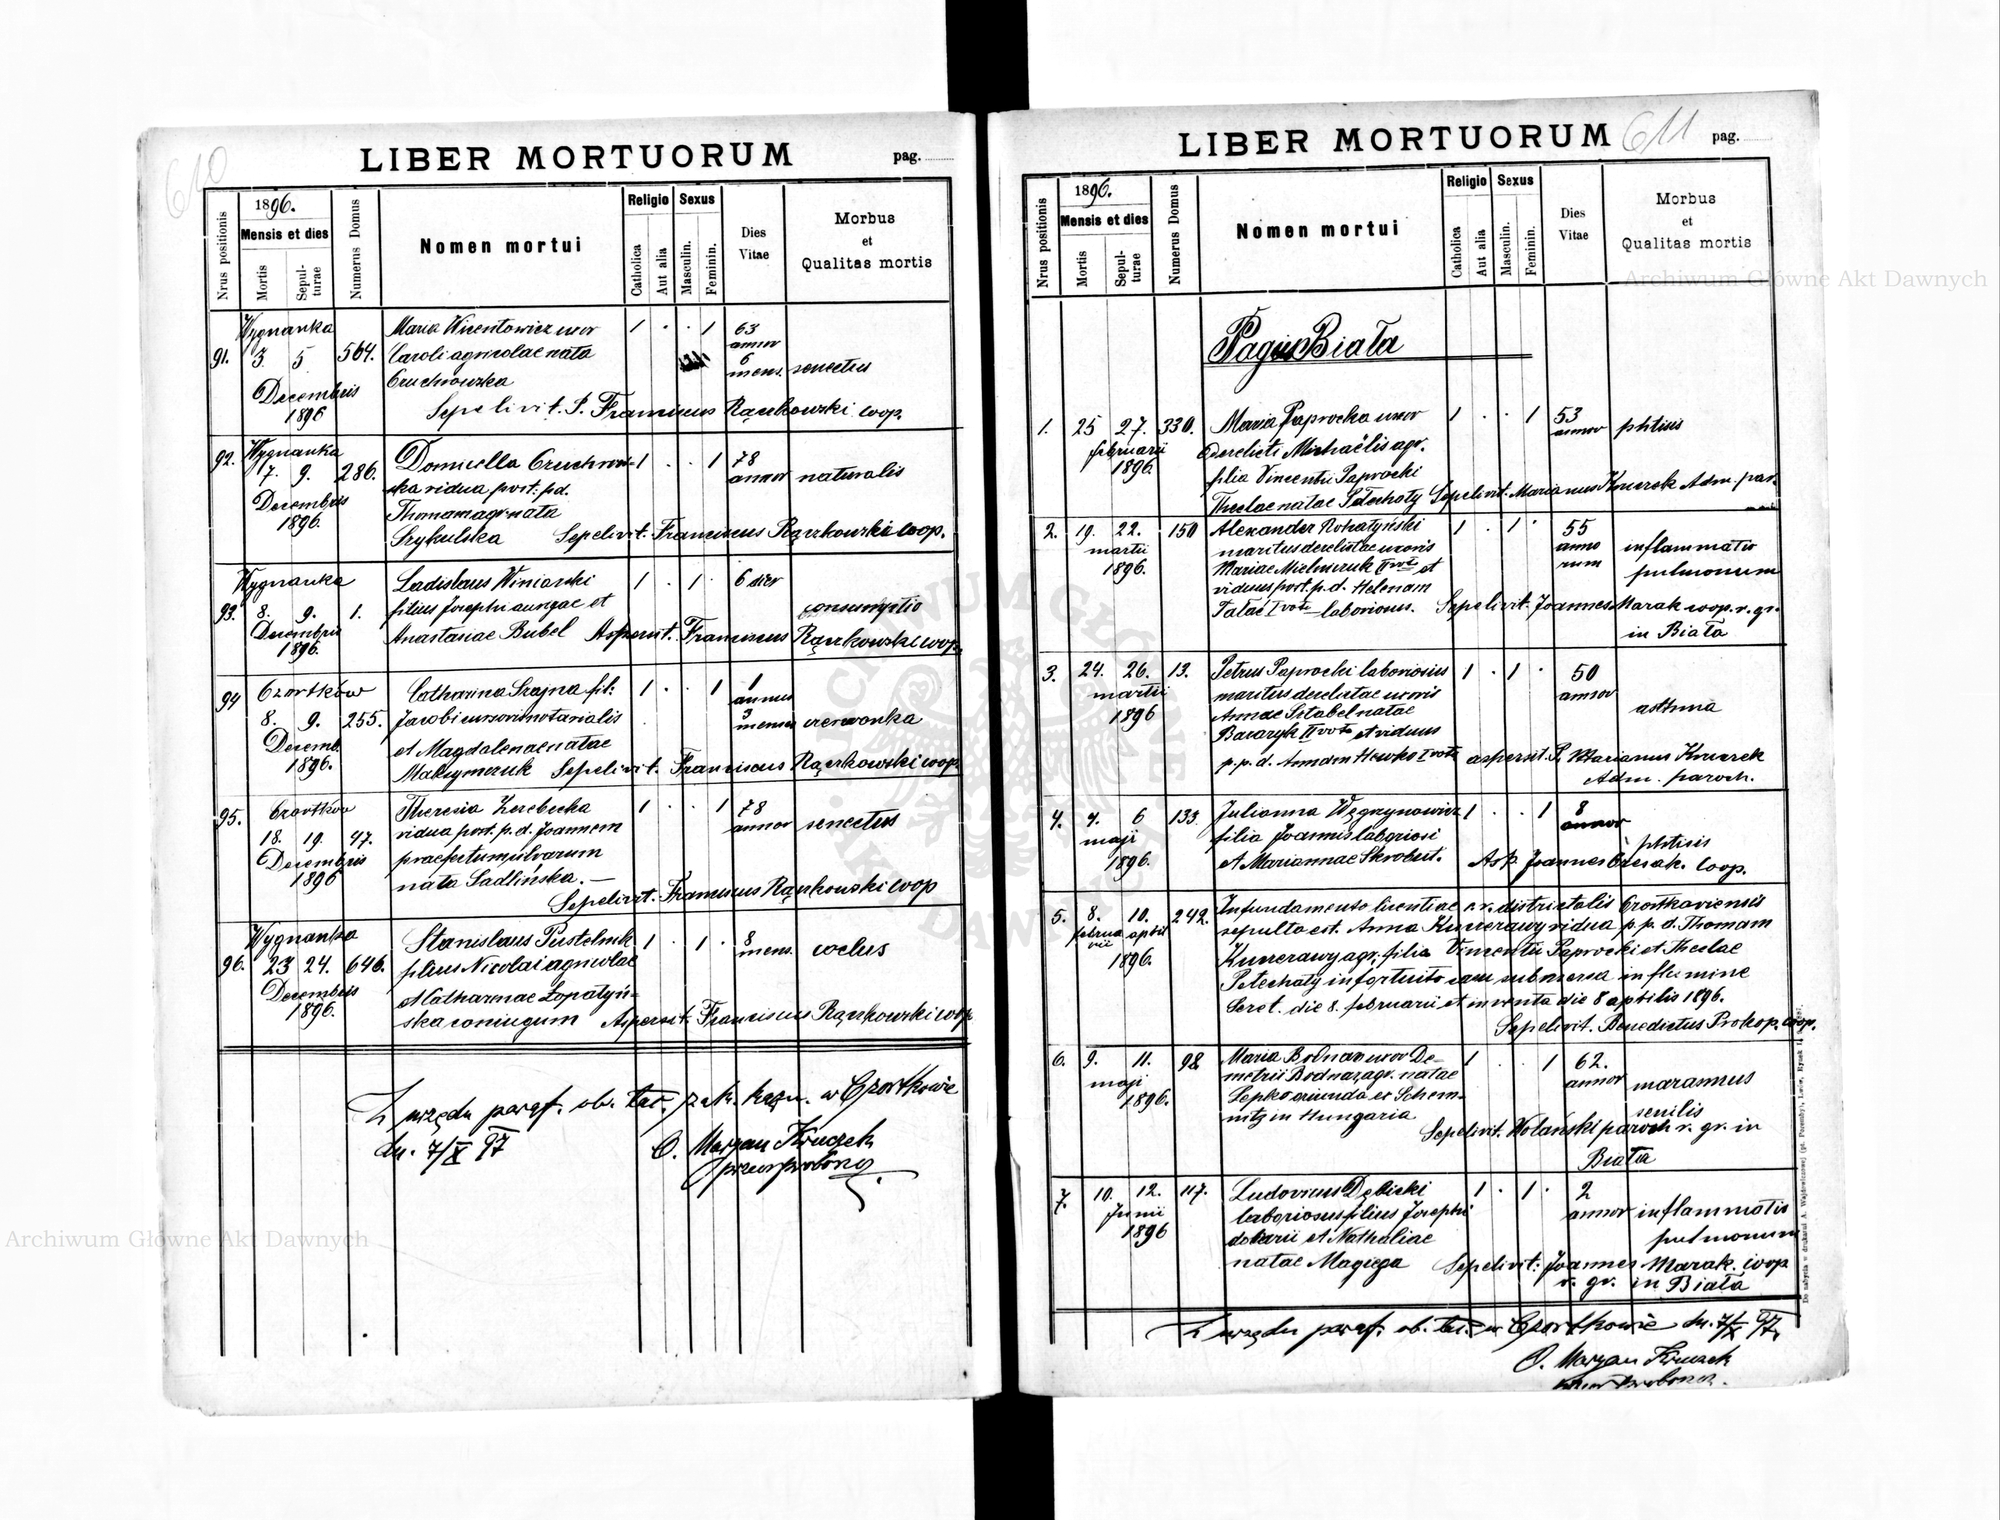 610
LIBER MORTUORUM
pag.
Nrus positionis
1896.
Mensis et dies
Mortis
Sepulturae
Numerus Domus
Nomen mortui
Religio
Catholica
Aut alia
Sexus
Masculin.
Feminin.
Dies
Vitae
Morbus
et
Qualitas mortis
Wygnanka
91. 3 5 564.
Decembris
1896
Maria Wicentowicz uxor
Caroli agricolae nata
Czuchowska
1 . . 1
63
annor
6
mens. senectus
Sepelivit. P. Franciscus Rączkowski coop.
92. Wygnanka
7. 9. 286.
Decembris
1896.
Domicella Czuchow-
ska vidua post. p. d.
Thomam agr. nata
Szykulska
1 . . 1
78
annor naturalis
Sepelivit. Franciscus Rączkowski coop.
Wygnanka
93. 8. 9. 1.
Decembris
1896.
Ladislaus Winiarski
filius Josephi aurigae et
Anastasiae Bubel
1 . 1 .
6 dier
consumptio
Aspersit. Franciscus Rączkowski coop.
94 Czortków
8. 9. 255.
Decemb.
1896.
Catharina Szajna fil:
Jacobi cursoris notarialis
et Magdalenae natae
Maksymczuk
1 . . 1
1
annus
3
menses czerwonka
Sepelivit. Franciscus Rączkowski coop.
95. Czortków
18. 19. 47.
Decembris
1896
Theresia Zerebecka
vidua post. p. d. Joannem
praefectum silvarum
nata Sadlińska. —
1 . . 1
78
annor senectus
Sepelivit. Franciscus Rączkowski coop
Wygnanka
96. 23 24. 646.
Decembris
1896.
Stanislaus Pustelnik
filius Nicolai agricolae
et Catharinae Łopatyń-
ska coniugum
1 . 1 .
8
mens. coelus
Aspersit. Franciscus Rączkowski coop
Z urzędu paraf. ob. łac. w Czortkowie
dn. 7/X 97
O. Maryan Kruczek
611
LIBER MORTUORUM
pag.
Nrus positionis
1896.
Mensis et dies
Mortis
Sepulturae
Numerus Domus
Nomen mortui
Religio
Catholica
Aut alia
Sexus
Masculin.
Feminin.
Dies
Vitae
Morbus
et
Qualitas mortis
Pagus Biała
1. 25 27. 330.
februarii
1896.
Maria Paprocka uxor
derelicti Michaëlis agr.
filia Vincentii Paprocki
Theclae natae Petechaty
1 . . 1
53
annor phtisis
Sepelivit. Marianus Kruczek Adm. par.
2. 19. 22. 150
martii
1896.
Alexander Rohatyński
maritus derelictae uxoris
Mariae Mielniczuk II voto et
viduus post. p. d. Helenam
Talae I voto laboriosus.
1 . 1 .
55
anno
rum
inflammatio
pulmonum
Sepelivit. Joannes Marak coop. r. gr.
in Biała
3. 24. 26. 13.
martii
1896
Petrus Paprocki laboriosus
maritus derelictae uxoris
Annae Sztabel natae
Bacaryk II voto et viduus
p. p. d. Annam Hewko I voto
1 . 1 .
50
annor
asthma
aspersit. P. Marianus Kruczek
Adm. paroch.
4. 4. 6 133.
maji
1896.
Julianna Węgrzynowicz
filia Joannis laboriosi
et Mariannae Skrobut.
1 . . 1
8
annor
phtisis
Asp. Joannes coop.
5. 8. 10. 242.
februa april
rii
1896.
In fundamento licentiae c. r. districtalis Czortkoviensis
sepulta est. Anna Kucerawy vidua p. p. d. Thomam
Kucerawy agr. filia Vincentii Paprocki et Theclae
Petechaty infortuito casu submersa in flumine
Seret. die 8. februarii et inventa die 8 aprilis 1896.
Sepelivit. Benedictus Prokop. coop.
6. 9. 11. 98
maji
1896.
Maria Bodnar uxor De-
metrii Bodnar agr. natae
Lepko oriunda ex Schem-
nitz in Hungaria
1 . . 1
62.
annor marasmus
senilis
Sepelivit. Wolański paroch r. gr. in
Biała
7. 10. 12. 117.
Junii
1896
Ludovicus Dębicki
laboriosus filius Josephi
doliarii et Nathaliae
natae Magiega
1 . 1 .
2
annor inflammatio
pulmonum
Sepelivit: Joannes Marak. coop
r. gr. in Biała
Z urzędu paraf. ob. łac. w Czortkowie dn. 7/X 97
O. Maryan Kruczek
Archiwum Główne Akt Dawnych
Archiwum Główne Akt Dawnych
ARCHIWUM GŁÓWNE AKT DAWNYCH